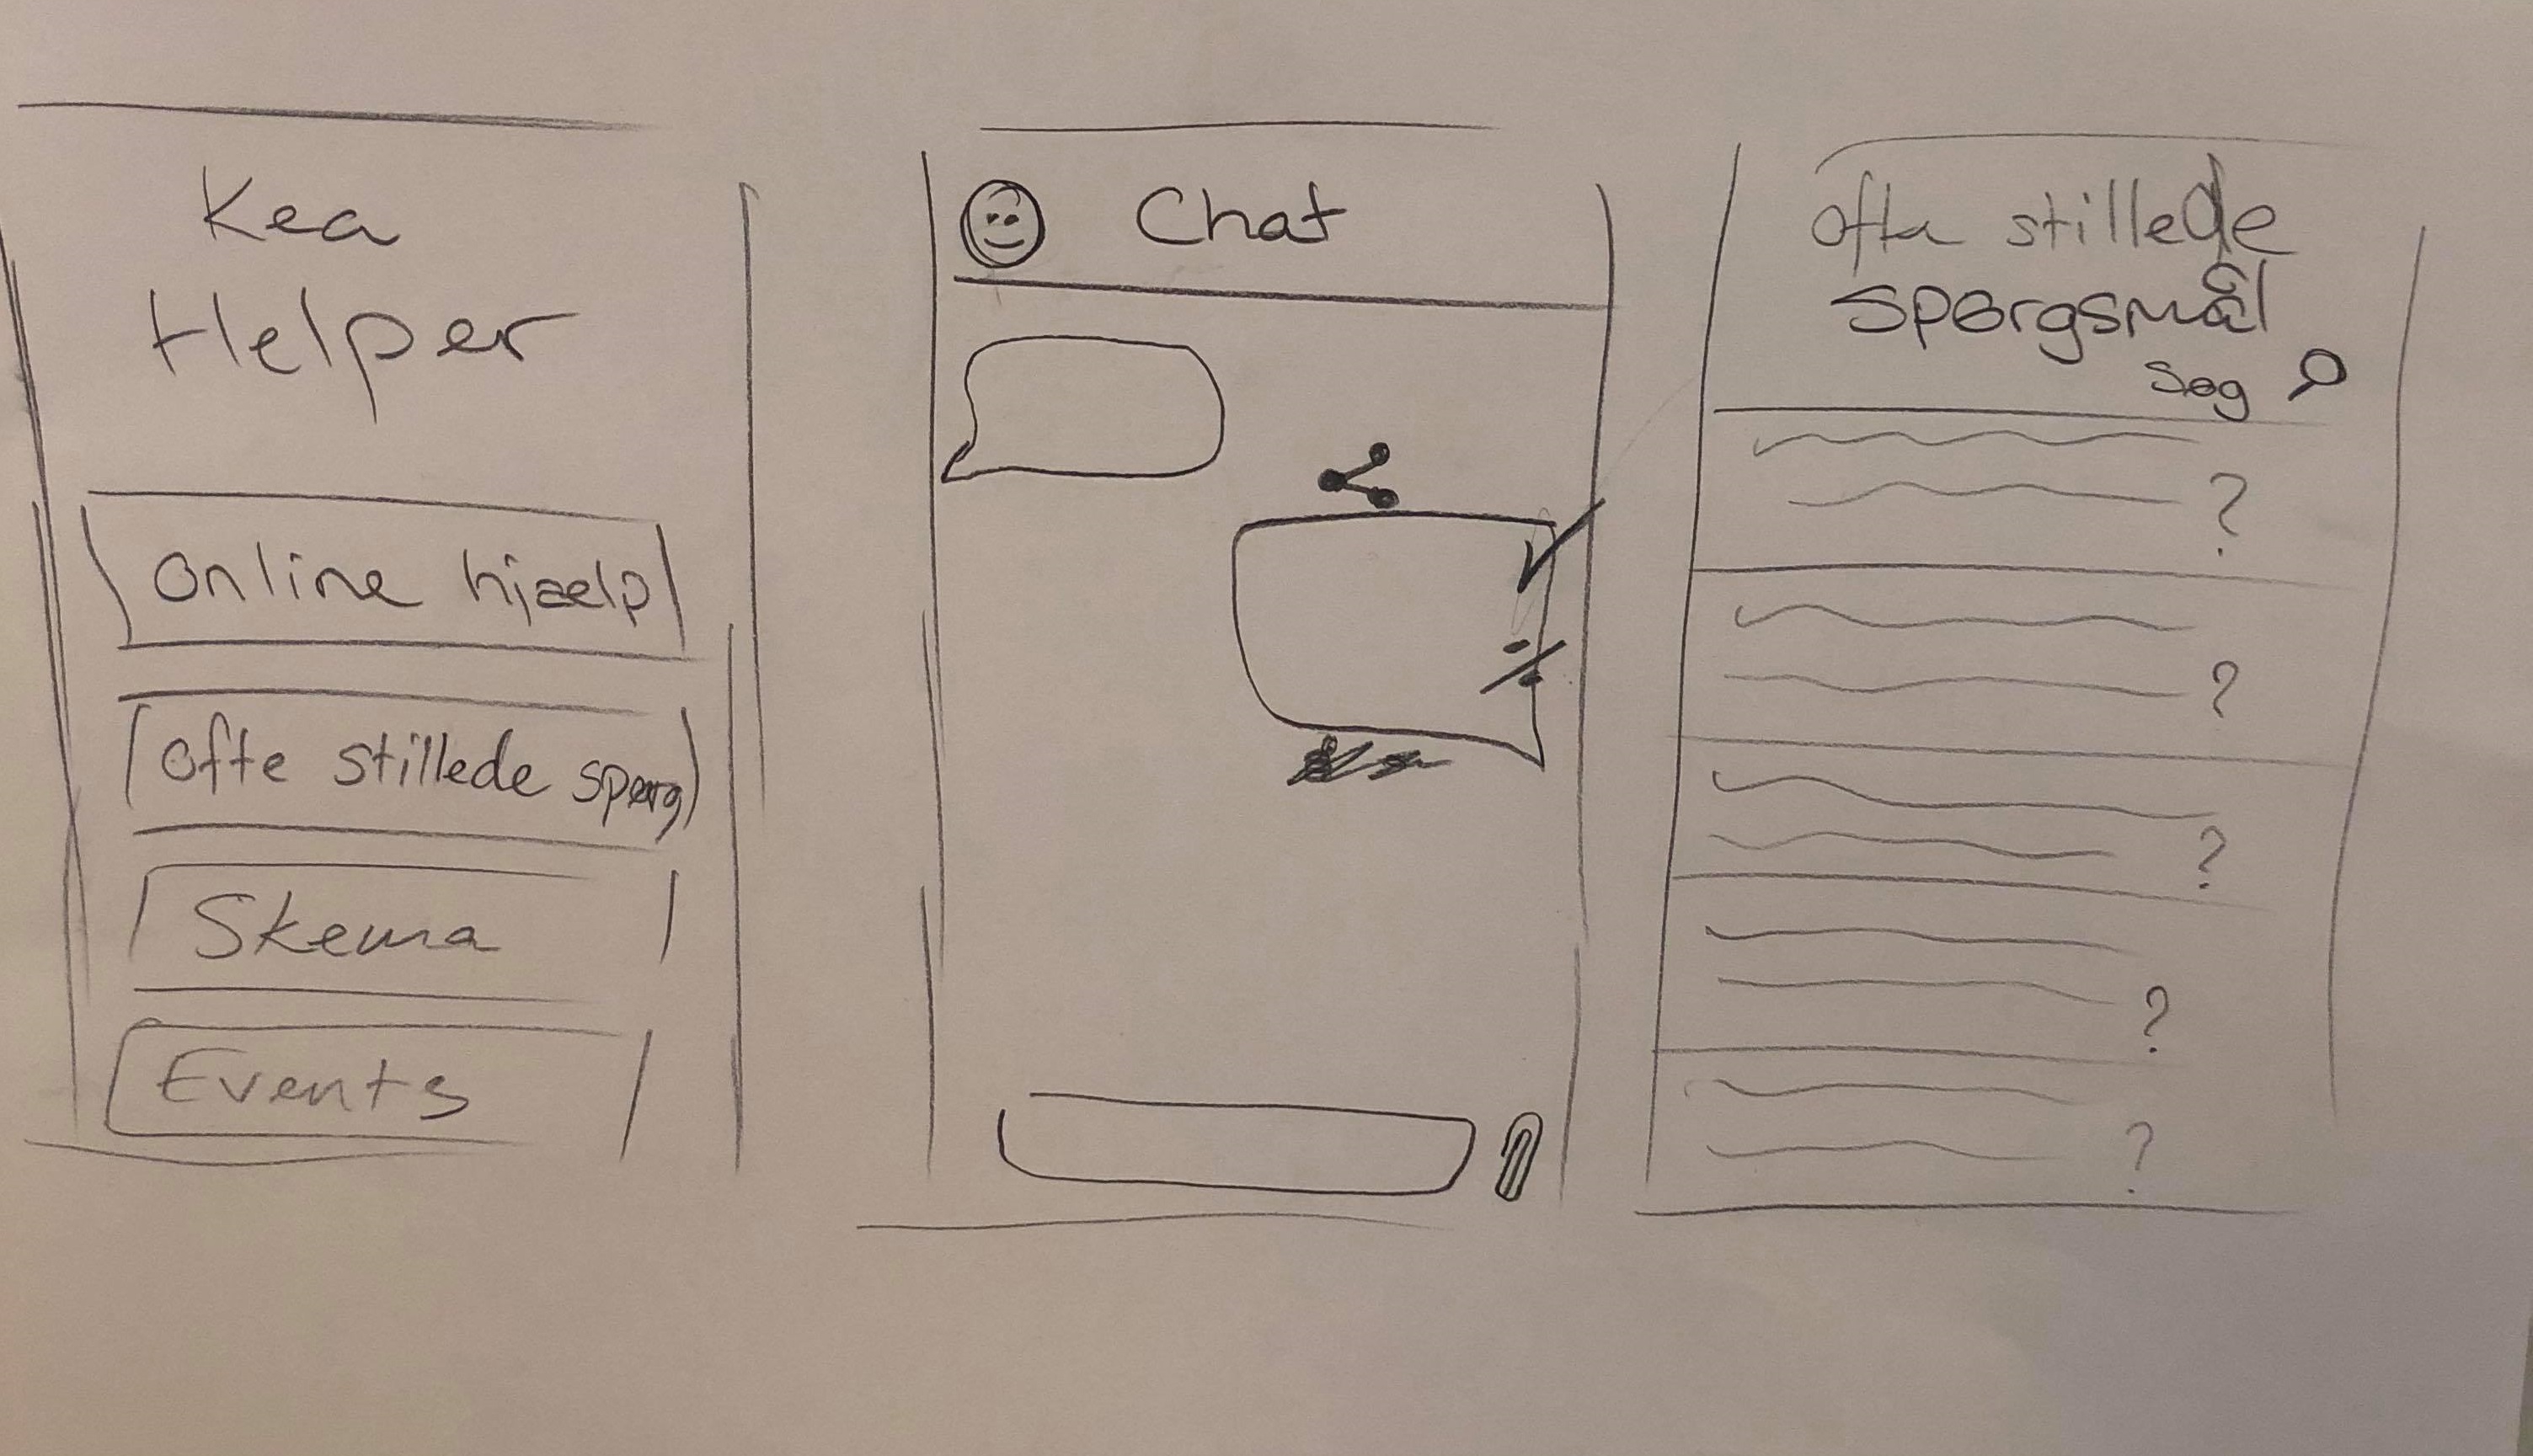 Kea
Helper
Online hjælp
Ofte stillede spørg
Skema
Events
Chat
Ofte stillede
spørgsmål
Søg
?
?
?
?
?